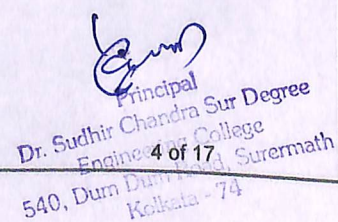 Principal
Dr. Sudhir Chandra Sur Degree
Engineering College
4 of 17
540, Dum Dum Road, Surermath
Kolkata - 74